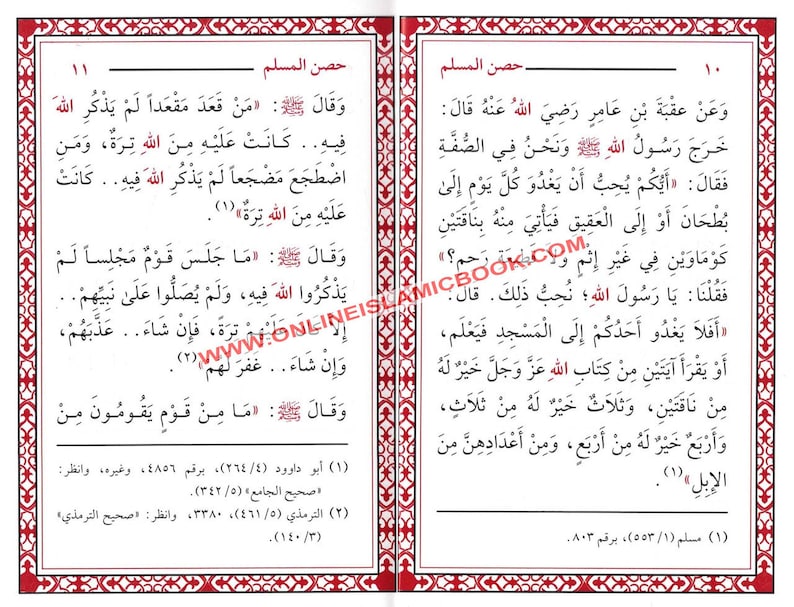 حصن المسلم ١٠
وَعَنْ عقْبَةَ بْنِ عامِرٍ رَضِيَ اللهُ عَنْهُ قَالَ:
خَرَجَ رَسُولُ اللهِ ﷺ وَنَحْنُ فِي الصُّفَّةِ
فَقَالَ: «أَيُّكُمْ يُحِبُّ أَنْ يَغْدُوَ كُلَّ يَوْمٍ إِلىَٰ
بُطْحَانَ أَوْ إِلى العَقِيقِ فَيَأْتِيَ مِنْهُ بِنَاقَتَيْنِ
كَوْمَاوَيْنِ فِي غَيْرِ إِثْمٍ وَلا قَطِيعَةِ رحِم؟»
فَقُلْنَا: يَا رَسُولَ اللهِ؛ نُحِبُّ ذلِكَ. قَالَ:
«أَفَلاَ يَغْدُو أَحَدُكُمْ إِلَى المَسْجِدِ فَيَعْلَمَ،
أَوْ يَقْرَأَ آيَتَيْنِ مِنْ كِتَابِ اللهِ عَزَّ وَجَلَّ خَيْرٌ لَهُ
مِنْ نَاقَتَيْنِ، وَثَلاثٌ خَيْرٌ لَهُ مِنْ ثَلاثٍ،
وَأَرْبَعٌ خَيْرٌ لَهُ مِنْ أَرْبَعٍ، وَمِنْ أَعْدَادِهِنَّ مِنَ
الإِبِلِ»(١).
(١) مسلم (١/ ٥٥٣)، برقم ٨٠٣.
حصن المسلم ١١
وَقَالَ ﷺ: «مَن قَعَدَ مَقْعَداً لَمْ يَذْكُرِ اللهَ
فِيهِ.. كَانَتْ عَلَيْهِ مِنَ اللهِ تِرَةٌ، وَمَنِ
اضْطَجَعَ مَضْجَعاً لَمْ يَذْكُرِ اللهَ فِيهِ.. كَانَتْ
عَلَيْهِ مِنَ اللهِ تِرَةٌ»(١).
وَقَالَ ﷺ: «مَا جَلَسَ قَوْمٌ مَجْلِساً لَمْ
يَذْكُرُوا اللهَ فِيهِ، وَلَمْ يُصَلُّوا عَلىٰ نَبِيِّهِمْ..
إِلاَّ كَانَ عَلَيْهِمْ تِرَةً، فَإِنْ شَاءَ.. عَذَّبَهُمْ،
وَإِنْ شَاءَ.. غَفَرَ لَهُمْ»(٢).
وَقَالَ ﷺ: «مَا مِنْ قَوْمٍ يَقُومُونَ مِنْ
(١) أبو داوود (٤/ ٢٦٤)، برقم ٤٨٥٦، وغيره، وانظر:
«صحيح الجامع» (٥/ ٣٤٢).
(٢) الترمذي (٥/ ٤٦١)، ٣٣٨٠، وانظر: «صحيح الترمذي»
(٣/ ١٤٠).
WWW.ONLINEISLAMICBOOK.COM